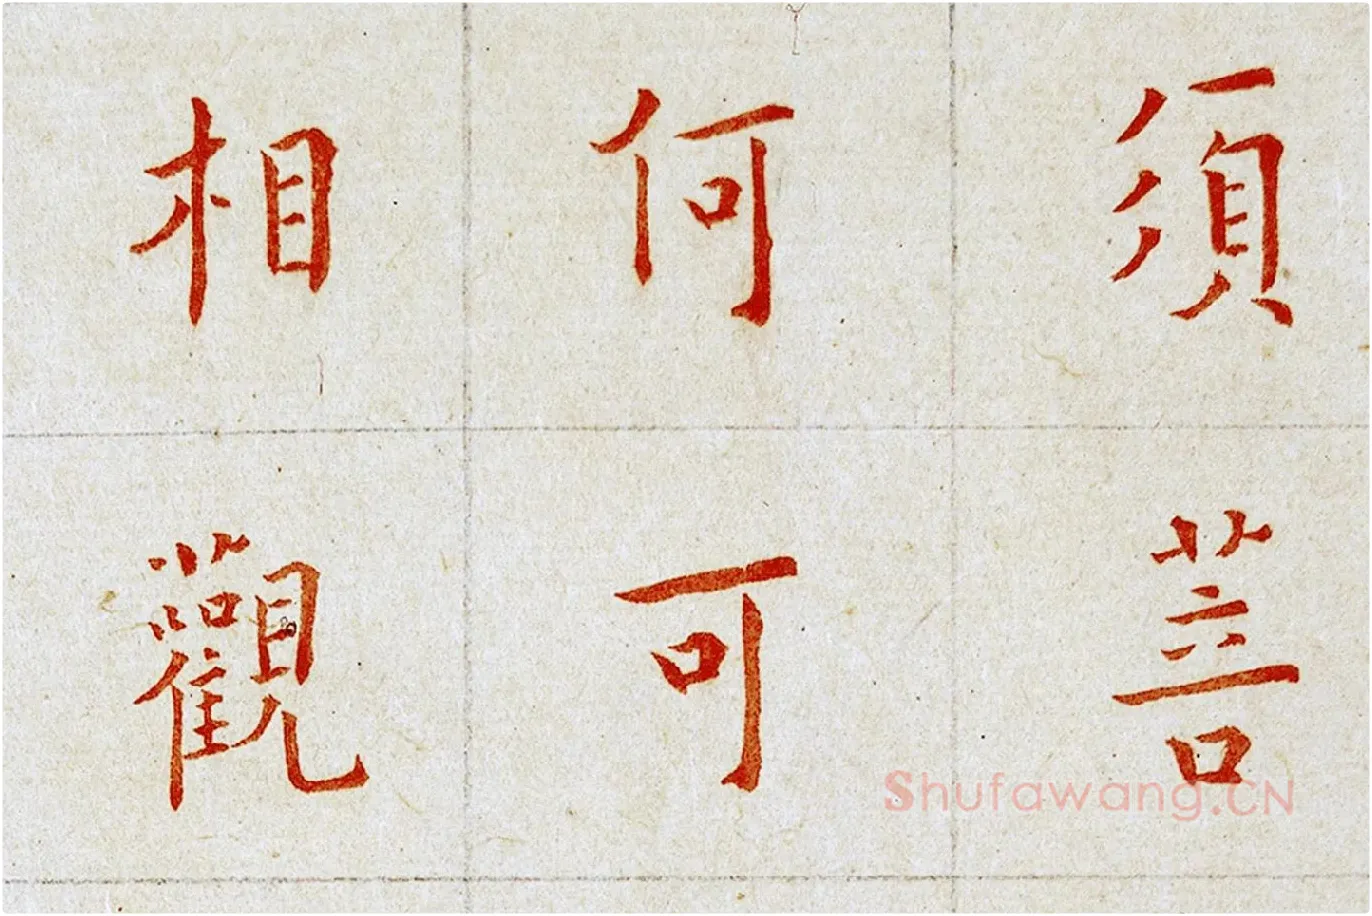 須菩
何可
相觀
Shufawang.CN